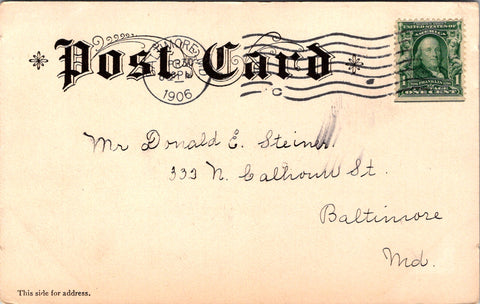 Post Card
1906
UNITED STATES OF AMERICA
FRANKLIN
ONE CENT
Mr Donald E. Steiner
333 N. Calhoun St.
Baltimore
Md.
This side for address.